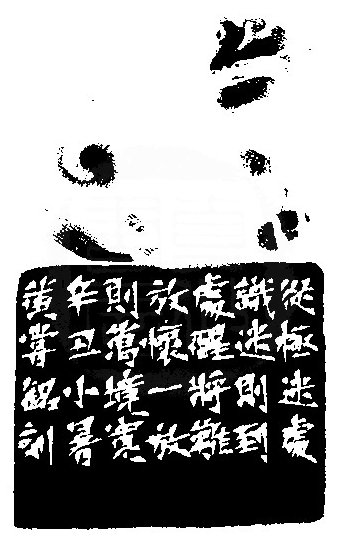 從極迷處
識迷則到
處醒將難
放懷一放
則萬境寬
辛丑小暑
黃